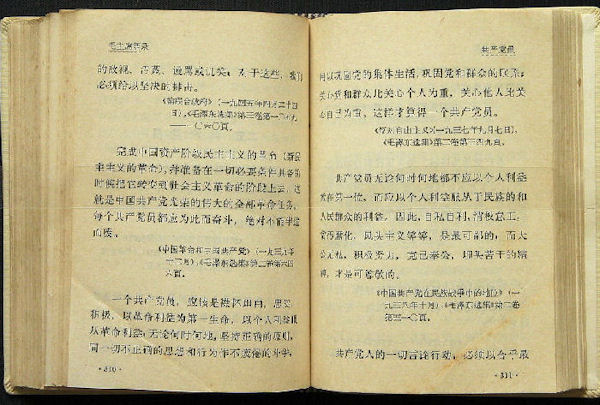 毛主席语录
的敌视、污蔑、谩骂或讥笑;对于这些,我们
必须给以坚决的排击。
《论联合政府》(一九四五年四月二十四
日),《毛泽东选集》第三卷第一〇五九
——一〇六〇页。
完成中国资产阶级民主主义的革命(新民
主主义的革命),并准备在一切必要条件具备的
时候把它转变到社会主义革命的阶段上去,这
就是中国共产党光荣的伟大的全部革命任务。
每个共产党员都应为此而奋斗,绝对不能半途
而废。
《中国革命和中国共产党》(一九三九年
十二月),《毛泽东选集》第二卷第六四
六页。
一个共产党员,应该是襟怀坦白,忠实,
积极,以革命利益为第一生命,以个人利益服
从革命利益;无论何时何地,坚持正确的原则,
同一切不正确的思想和行为作不疲倦的斗争,
·310·
共产党员
用以巩固党的集体生活,巩固党和群众的联系;
关心党和群众比关心个人为重,关心他人比关
心自己为重。这样才算得一个共产党员。
《反对自由主义》(一九三七年九月七日),
《毛泽东选集》第二卷第三四九页。
共产党员无论何时何地都不应以个人利益
放在第一位,而应以个人利益服从于民族的和
人民群众的利益。因此,自私自利,消极怠工,
贪污腐化,风头主义等等,是最可鄙的;而大
公无私,积极努力,克己奉公,埋头苦干的精
神,才是可尊敬的。
《中国共产党在民族战争中的地位》(一
九三八年十月),《毛泽东选集》第二卷
第五一〇页。
共产党人的一切言论行动,必须以合乎最
·311·